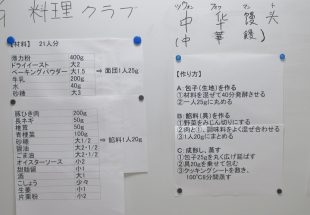 料理クラブ
中華饅頭
(中華饅)
【材料】 21人分
薄力粉 400g
ドライイースト 大2
ベーキングパウダー 大1.5
牛乳 200g
水 40g
砂糖 大3
⇒ 面団1人25g
豚ひき肉 200g
長ネギ 50g
地筍 50g
青梗菜 100g
砂糖 大1/2
醤油 大2・1/2
ごま油 大2・1/2
オイスターソース 小2
甜麺醤 小1
酒 大1
こしょう 少々
生姜 小1
片栗粉 小2
⇒ 餡料1人20g
【作り方】
A 包子(生地)を作る
①材料を混ぜて40分発酵させる
②一人25gに丸める
B 餡料(具)を作る
①野菜をみじん切りにする
②肉と①、調味料をよく混ぜ合わせる
③1人20gにまとめる
C 成形し、蒸す
①包子25gを丸く広げ延ばす
②具20gを乗せて包む
③クッキングシートを敷き、
100℃8分間蒸す